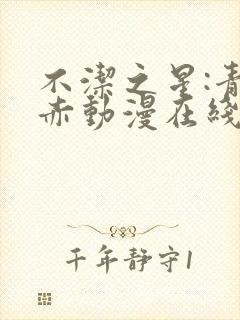 不潔之星:青
赤動漫在綫
千年靜守1